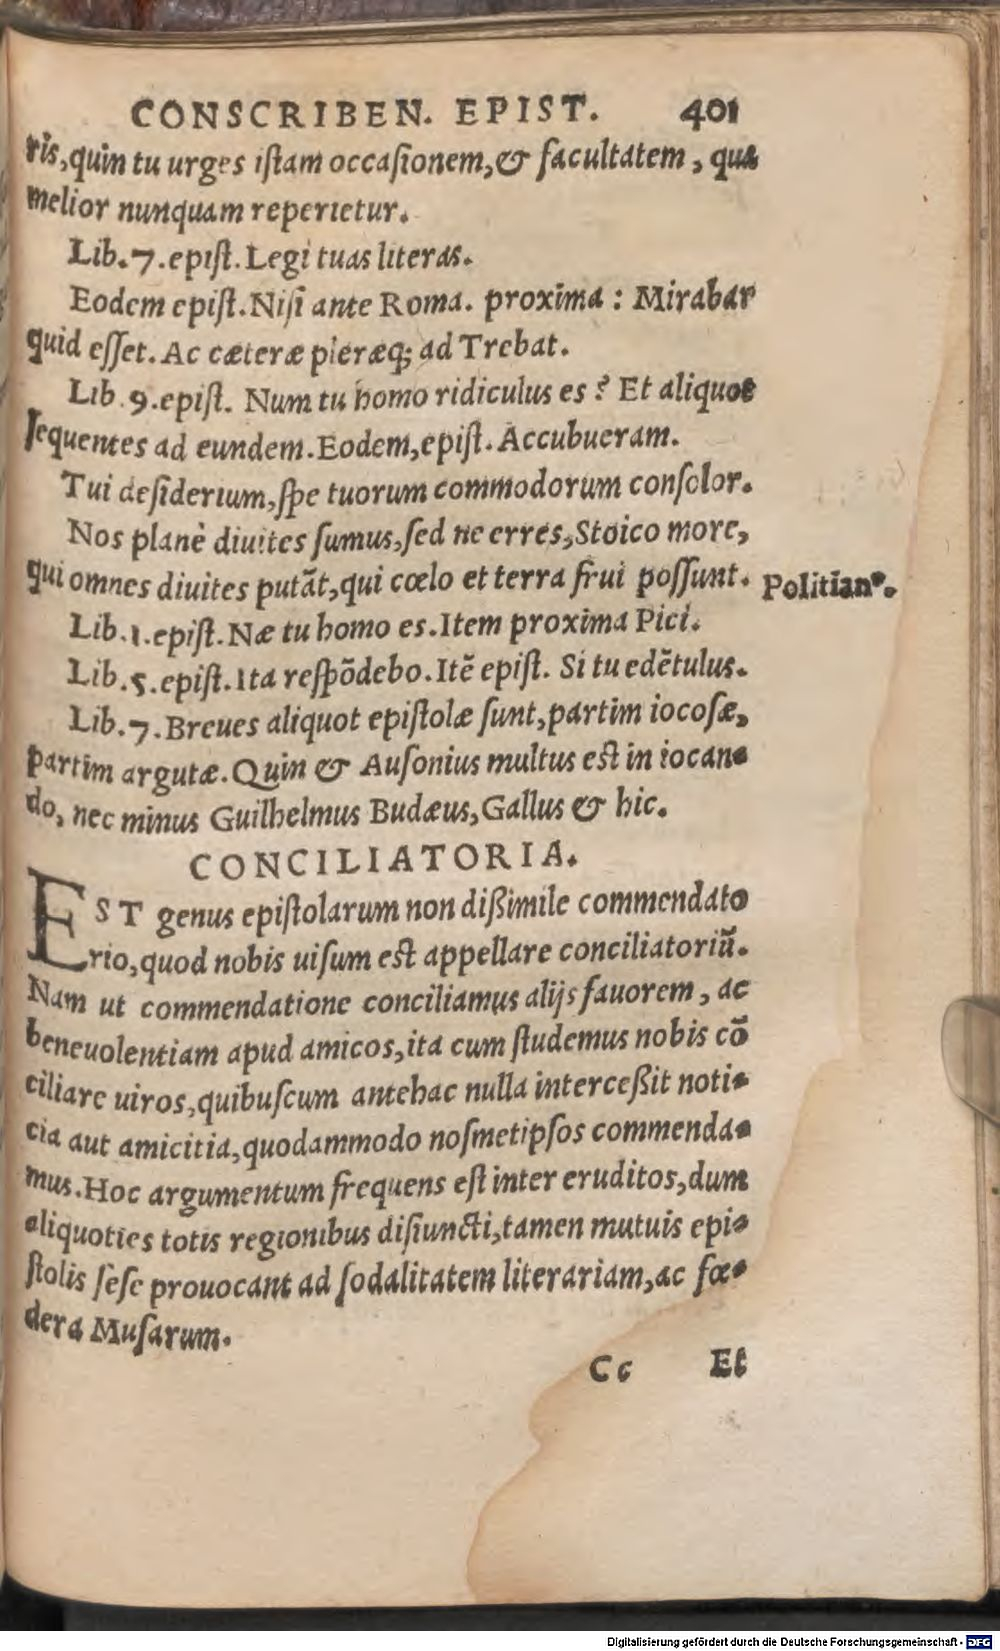 CONSCRIBEN. EPIST. 401
ris, quin tu urges iſtam occaſionem, & facultatem, qua
melior nunquam reperietur.
Lib. 7. epiſt. Legi tuas literas.
Eodem epiſt. Niſi ante Roma. proxima : Mirabar
quid eſſet. Ac cæteræ pleræq; ad Trebat.
Lib. 9. epiſt. Num tu homo ridiculus es ? Et aliquot
ſequentes ad eundem. Eodem, epiſt. Accubueram.
Tui deſiderium, ſpe tuorum commodorum conſolor.
Nos planè diuites ſumus, ſed ne erres, Stoico more,
qui omnes diuites putāt, qui cœlo et terra frui poſſunt.
Politianꝰ.
Lib. 1. epiſt. Næ tu homo es. Item proxima Pici.
Lib. 5. epiſt. Ita reſpōdebo. Itē epiſt. Si tu edētulus.
Lib. 7. Breues aliquot epiſtolæ ſunt, partim iocoſæ,
partim argutæ. Quin & Auſonius multus eſt in iocan-
do, nec minus Guilhelmus Budæus, Gallus & hic.
CONCILIATORIA.
EST genus epiſtolarum non dißimile commendato
rio, quod nobis uiſum eſt appellare conciliatoriū.
Nam ut commendatione conciliamus alijs fauorem, ac
beneuolentiam apud amicos, ita cum ſtudemus nobis cō
ciliare uiros, quibuſcum antehac nulla interceßit noti-
cia aut amicitia, quodammodo noſmetipſos commenda-
mus. Hoc argumentum frequens eſt inter eruditos, dum
aliquoties totis regionibus diſiuncti, tamen mutuis epi-
ſtolis ſeſe prouocant ad ſodalitatem literariam, ac fœ-
dera Muſarum.
Cc Et
Digitalisierung gefördert durch die Deutsche Forschungsgemeinschaft - DFG